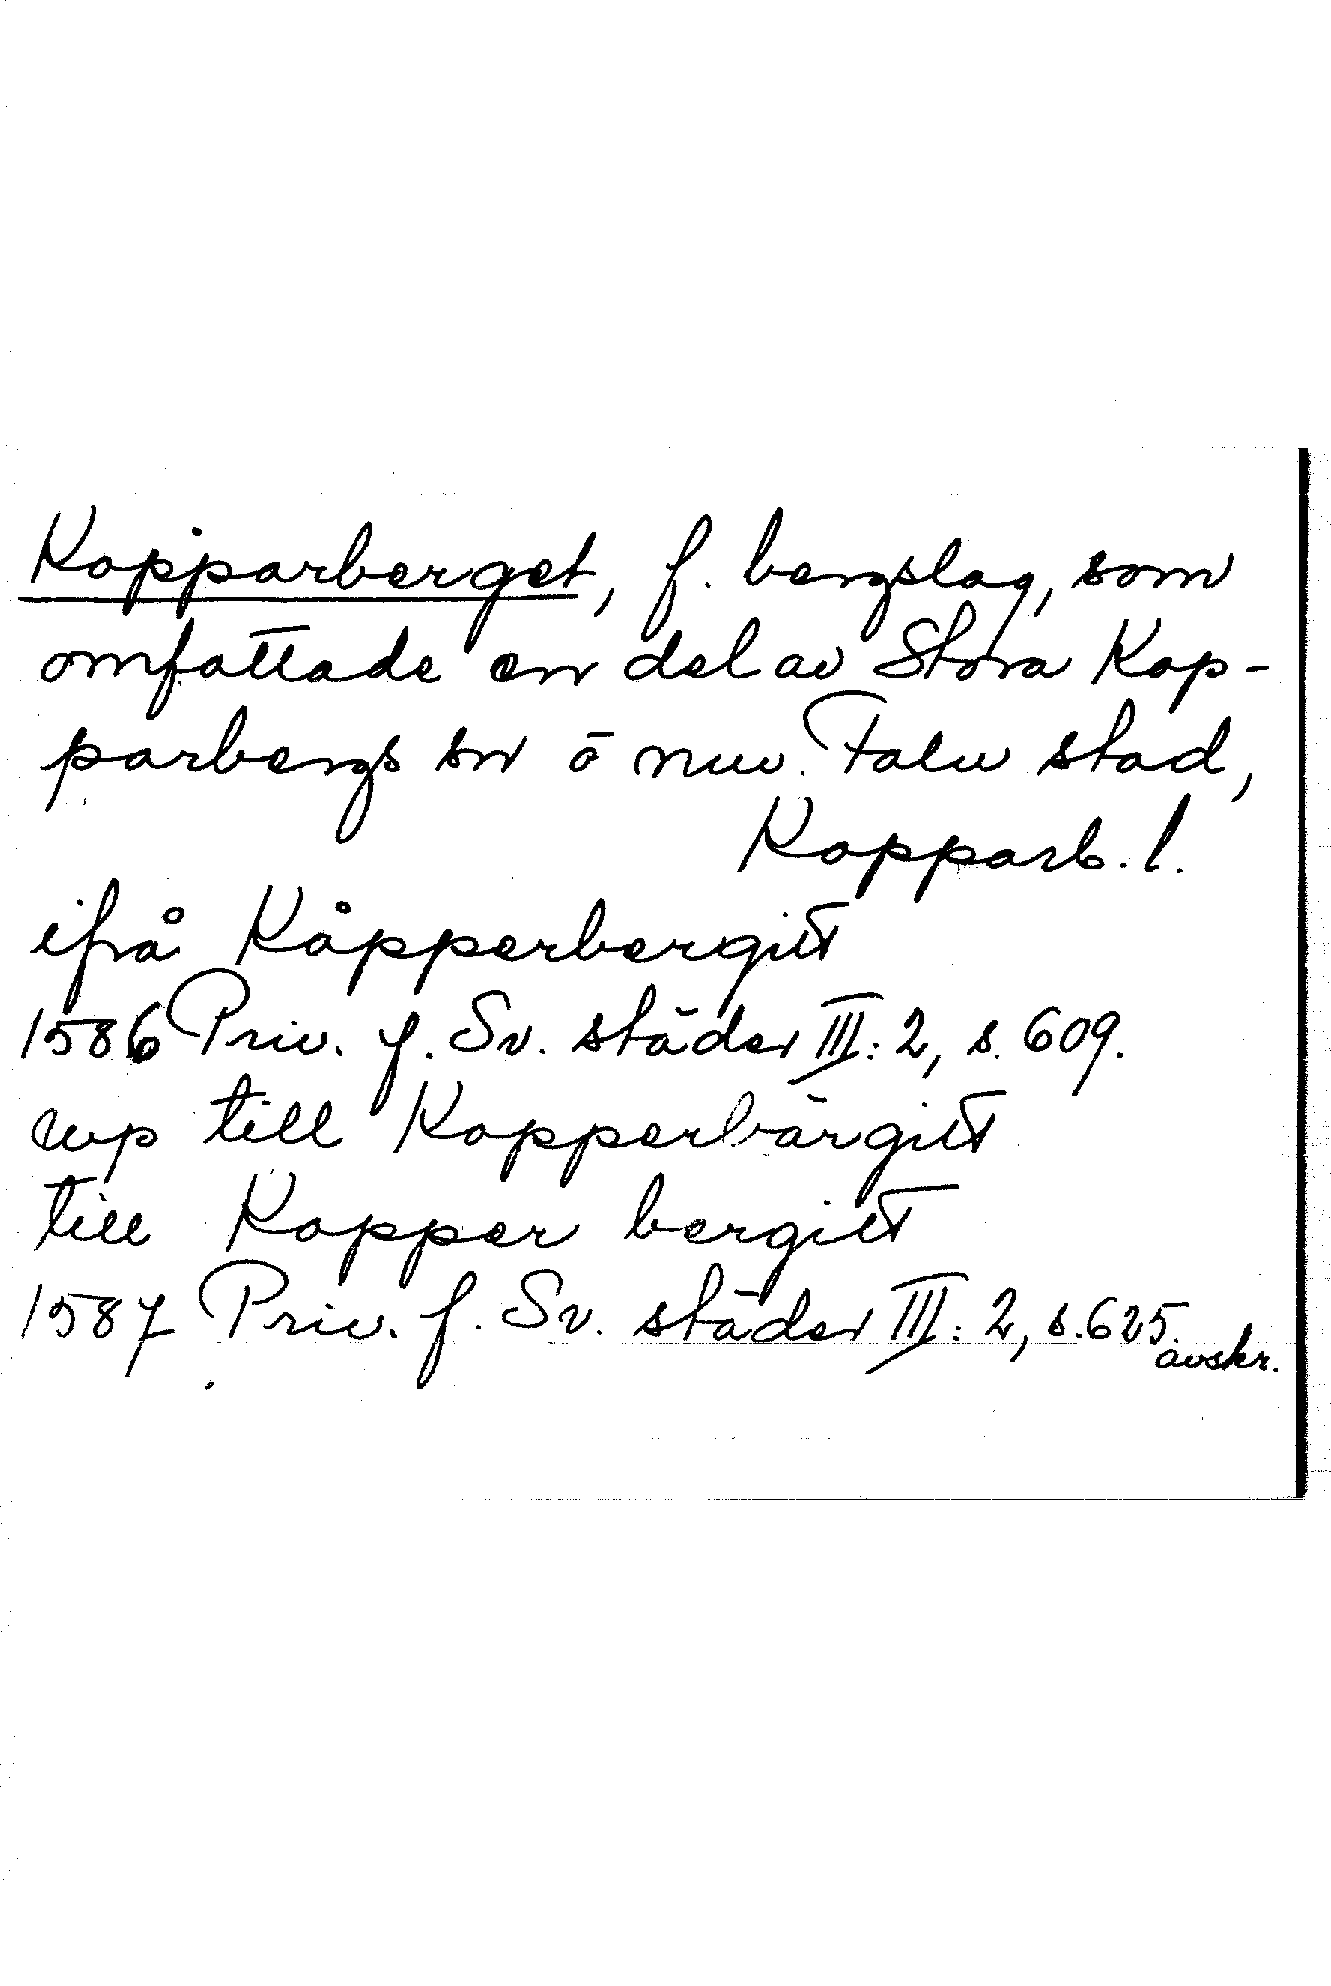 Kopparberget, f. bergslag, som
omfattade en del av Stora Kop-
parbergs sn o nuv. Falu stad,
Kopparb. l.
ifrå Kåpperbergitt
1586 Priv. f. Sv. städer III: 2, s. 609.
wp till Kopperbärgitt
till Kopper bergitt
1587 Priv. f. Sv. städer III: 2, s. 625.
avskr.